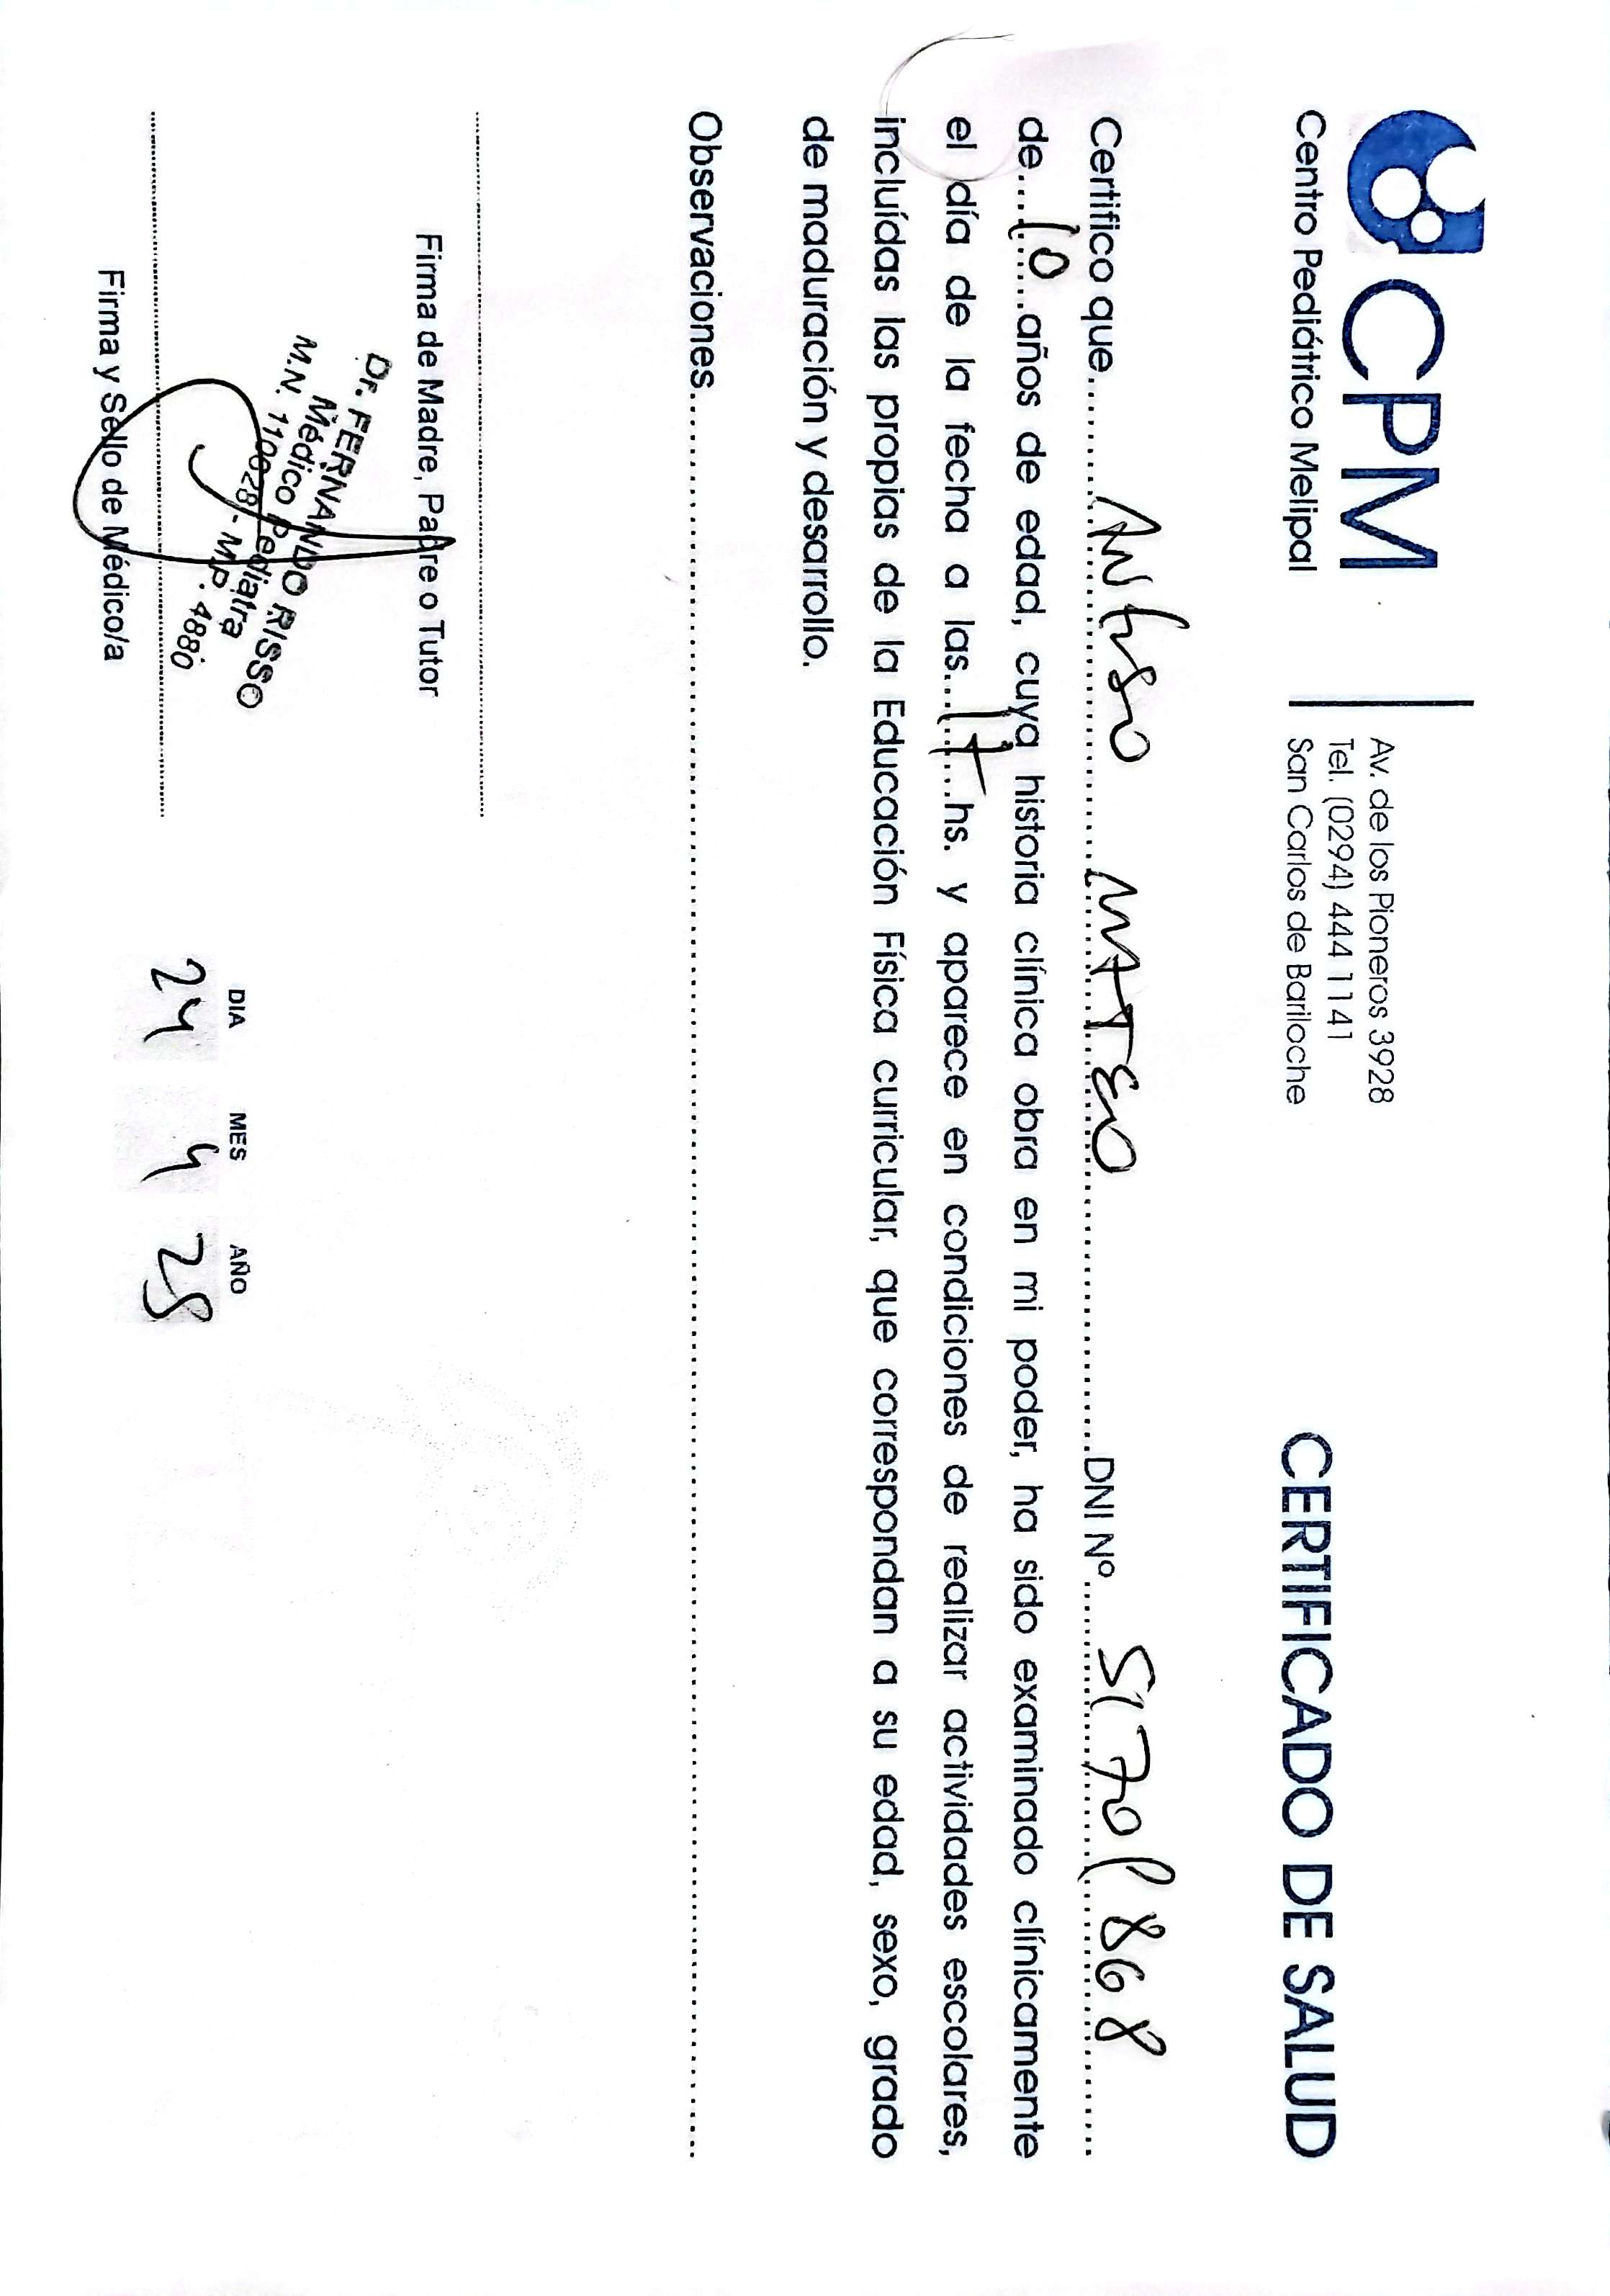 CPM
Centro Pediátrico Melipal
Av. de los Pioneros 3928
Tel. (0294) 444 1141
San Carlos de Bariloche
CERTIFICADO DE SALUD
Certifico que.......... MATEO ..........DNI Nº.......... 51701868
de....10....años de edad, cuya historia clínica obra en mi poder, ha sido examinado clínicamente
el día de la fecha a las....17....hs. y aparece en condiciones de realizar actividades escolares,
incluídas las propias de la Educación Física curricular, que correspondan a su edad, sexo, grado
de maduración y desarrollo.
Observaciones..........
Firma de Madre, Padre o Tutor
Dr. FERNANDO RISSO
Médico Pediatra
M.N. 110028 - MP. 4880
Firma y Sello de Médico/a
DIA MES AÑO
24 4 25